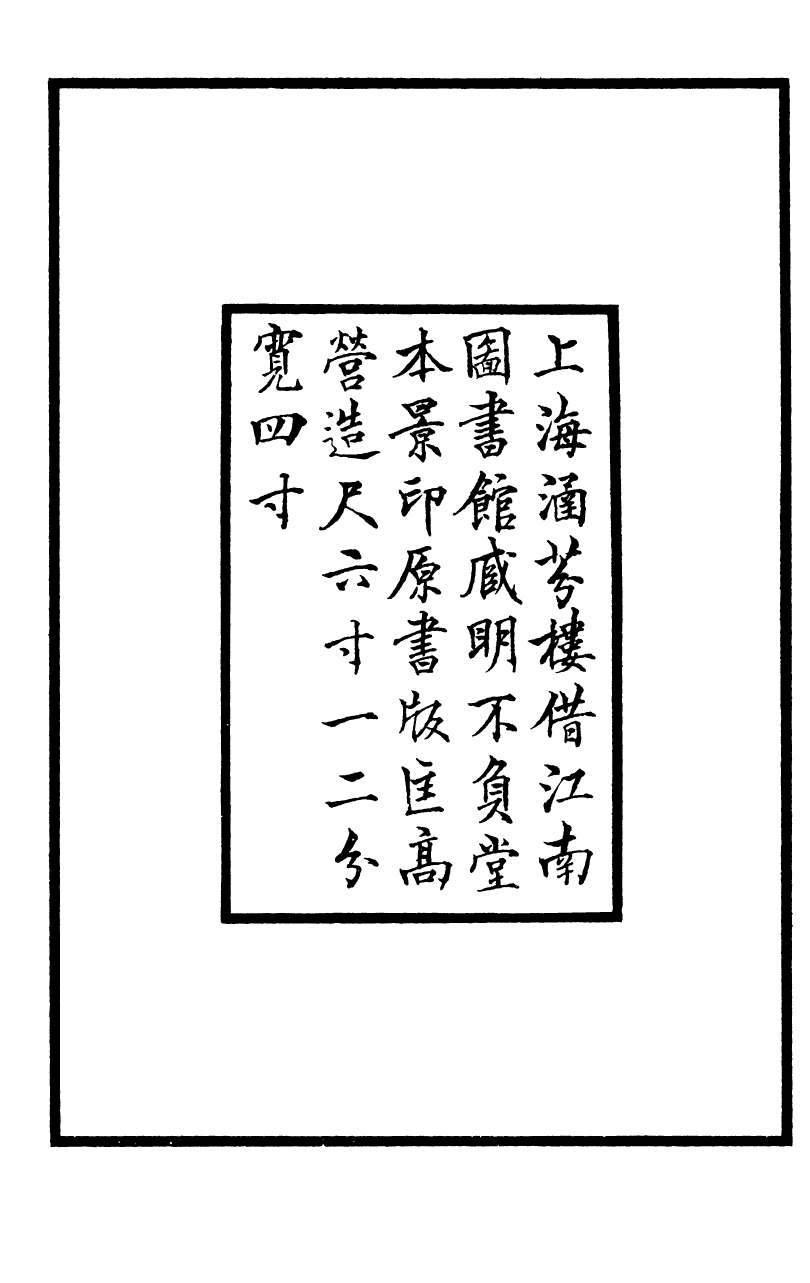 上海涵芬樓借江南
圖書館臧明不負堂
本景印原書版匡高
營造尺六寸一二分
寬四寸